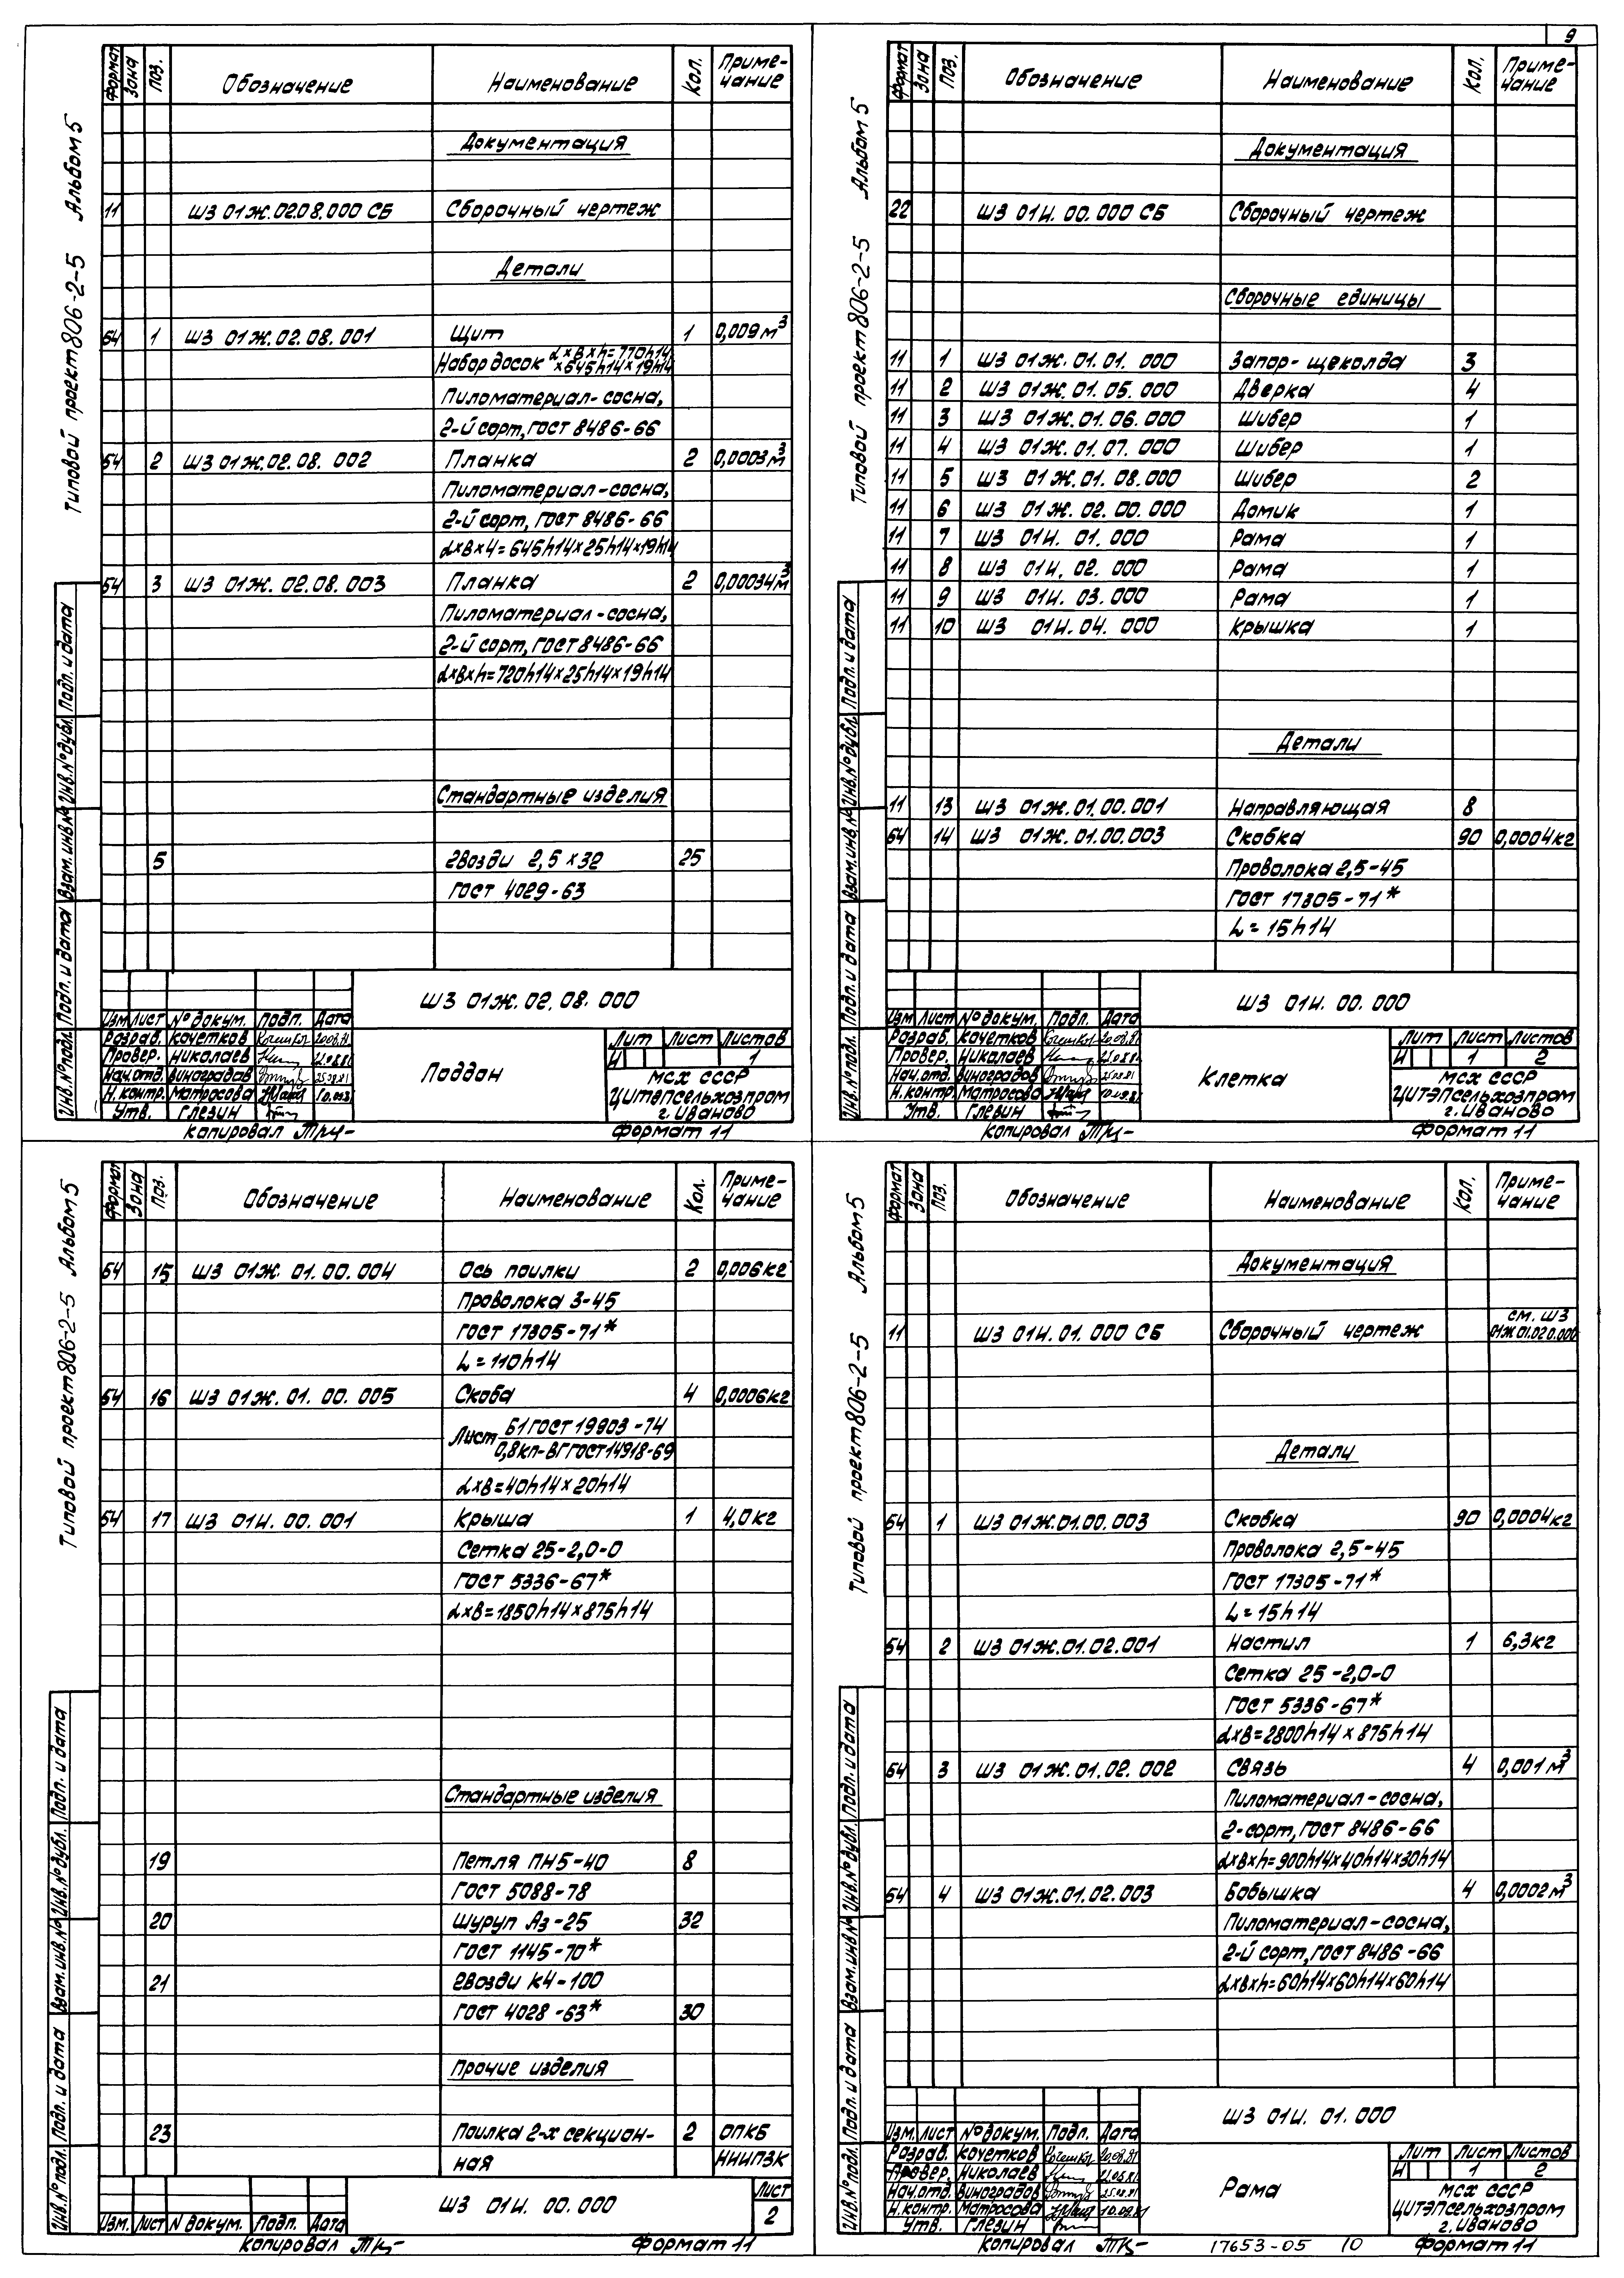 9
Типовой проект 806-2-5 Альбом 5
Формат Зона Поз. Обозначение Наименование Кол. Приме-
чание
Документация
11 ШЗ 01Ж.02.08.000 СБ Сборочный чертеж
Детали
БЧ 1 ШЗ 01Ж.02.08.001 Щит 1 0,009 м³
Набор досок L×B×h=770h14
×645h14×19h14
Пиломатериал-сосна,
2-й сорт, ГОСТ 8486-66
БЧ 2 ШЗ 01Ж.02.08.002 Планка 2 0,0003 м³
Пиломатериал-сосна,
2-й сорт, ГОСТ 8486-66
L×B×h=645h14×25h14×19h14
БЧ 3 ШЗ 01Ж.02.08.003 Планка 2 0,00034 м³
Пиломатериал-сосна,
2-й сорт, ГОСТ 8486-66
L×B×h=720h14×25h14×19h14
Стандартные изделия
5 Гвозди 2,5×32 25
ГОСТ 4029-63
ШЗ 01Ж.02.08.000
Изм. Лист № докум. Подп. Дата
Разраб. Кочетков 20.08.81
Провер. Николаев 21.08.81
Нач.отд. Виноградов 25.08.81
Н.контр. Матросова 10.09.81
Утв. Глезин
Поддон
Лит Лист Листов
И 1
МСХ СССР
ЦИТЭПсельхозпром
г. Иваново
Инв.№ подл. Подп. и дата Взам.инв.№ Инв.№ дубл. Подп. и дата
Копировал Формат 11
Типовой проект 806-2-5 Альбом 5
Формат Зона Поз. Обозначение Наименование Кол. Приме-
чание
Документация
22 ШЗ 01И.00.000 СБ Сборочный чертеж
Сборочные единицы
11 1 ШЗ 01Ж.01.01.000 Запор-щеколда 3
11 2 ШЗ 01Ж.01.05.000 Дверка 4
11 3 ШЗ 01Ж.01.06.000 Шибер 1
11 4 ШЗ 01Ж.01.07.000 Шибер 1
11 5 ШЗ 01Ж.01.08.000 Шибер 2
11 6 ШЗ 01Ж.02.00.000 Домик 1
11 7 ШЗ 01И.01.000 Рама 1
11 8 ШЗ 01И.02.000 Рама 1
11 9 ШЗ 01И.03.000 Рама 1
11 10 ШЗ 01И.04.000 Крышка 1
Детали
11 13 ШЗ 01Ж.01.00.001 Направляющая 8
БЧ 14 ШЗ 01Ж.01.00.003 Скобка 90 0,0004кг
Проволока 2,5-45
ГОСТ 17305-71*
L=15h14
ШЗ 01И.00.000
Изм. Лист № докум. Подп. Дата
Разраб. Кочетков 20.08.81
Провер. Николаев 21.08.81
Нач.отд. Виноградов 25.08.81
Н.контр. Матросова 10.09.81
Утв. Глезин
Клетка
Лит Лист Листов
И 1 2
МСХ СССР
ЦИТЭПсельхозпром
г. Иваново
Инв.№ подл. Подп. и дата Взам.инв.№ Инв.№ дубл. Подп. и дата
Копировал Формат 11
Типовой проект 806-2-5 Альбом 5
Формат Зона Поз. Обозначение Наименование Кол. Приме-
чание
БЧ 15 ШЗ 01Ж.01.00.004 Ось поилки 2 0,006кг
Проволока 3-45
ГОСТ 17305-71*
L=110h14
БЧ 16 ШЗ 01Ж.01.00.005 Скоба 4 0,0006кг
Лист Б1 ГОСТ 19903-74
0,8кп-ВГ ГОСТ 14918-69
L×B=40h14×20h14
БЧ 17 ШЗ 01И.00.001 Крыша 1 4,0кг
Сетка 25-2,0-0
ГОСТ 5336-67*
L×B=1850h14×875h14
Стандартные изделия
19 Петля ПН5-40 8
ГОСТ 5088-78
20 Шуруп А3-25 32
ГОСТ 1145-70*
21 Гвозди К4-100
ГОСТ 4028-63* 30
Прочие изделия
23 Поилка 2-х секцион- 2 ОПКБ
ная НИИПЗК
ШЗ 01И.00.000
Лист
2
Изм. Лист № докум. Подп. Дата
Инв.№ подл. Подп. и дата Взам.инв.№ Инв.№ дубл. Подп. и дата
Копировал Формат 11
Типовой проект 806-2-5 Альбом 5
Формат Зона Поз. Обозначение Наименование Кол. Приме-
чание
Документация
11 ШЗ 01И.01.000 СБ Сборочный чертеж см. ШЗ
01Ж.01.02.0.000
Детали
БЧ 1 ШЗ 01Ж.01.00.003 Скобка 90 0,0004кг
Проволока 2,5-45
ГОСТ 17305-71*
L=15h14
БЧ 2 ШЗ 01Ж.01.02.001 Настил 1 6,3кг
Сетка 25-2,0-0
ГОСТ 5336-67*
L×B=2800h14×875h14
БЧ 3 ШЗ 01Ж.01.02.002 Связь 4 0,001 м³
Пиломатериал-сосна,
2-сорт, ГОСТ 8486-66
L×B×h=900h14×40h14×30h14
БЧ 4 ШЗ 01Ж.01.02.003 Бобышка 4 0,0002 м³
Пиломатериал-сосна,
2-й сорт, ГОСТ 8486-66
L×B×h=60h14×60h14×60h14
ШЗ 01И.01.000
Изм. Лист № докум. Подп. Дата
Разраб. Кочетков 20.08.81
Провер. Николаев 21.08.81
Нач.отд. Виноградов 25.08.81
Н.контр. Матросова 10.09.81
Утв. Глезин
Рама
Лит Лист Листов
И 1 2
МСХ СССР
ЦИТЭПсельхозпром
г. Иваново
Инв.№ подл. Подп. и дата Взам.инв.№ Инв.№ дубл. Подп. и дата
Копировал 17653-05 10 Формат 11